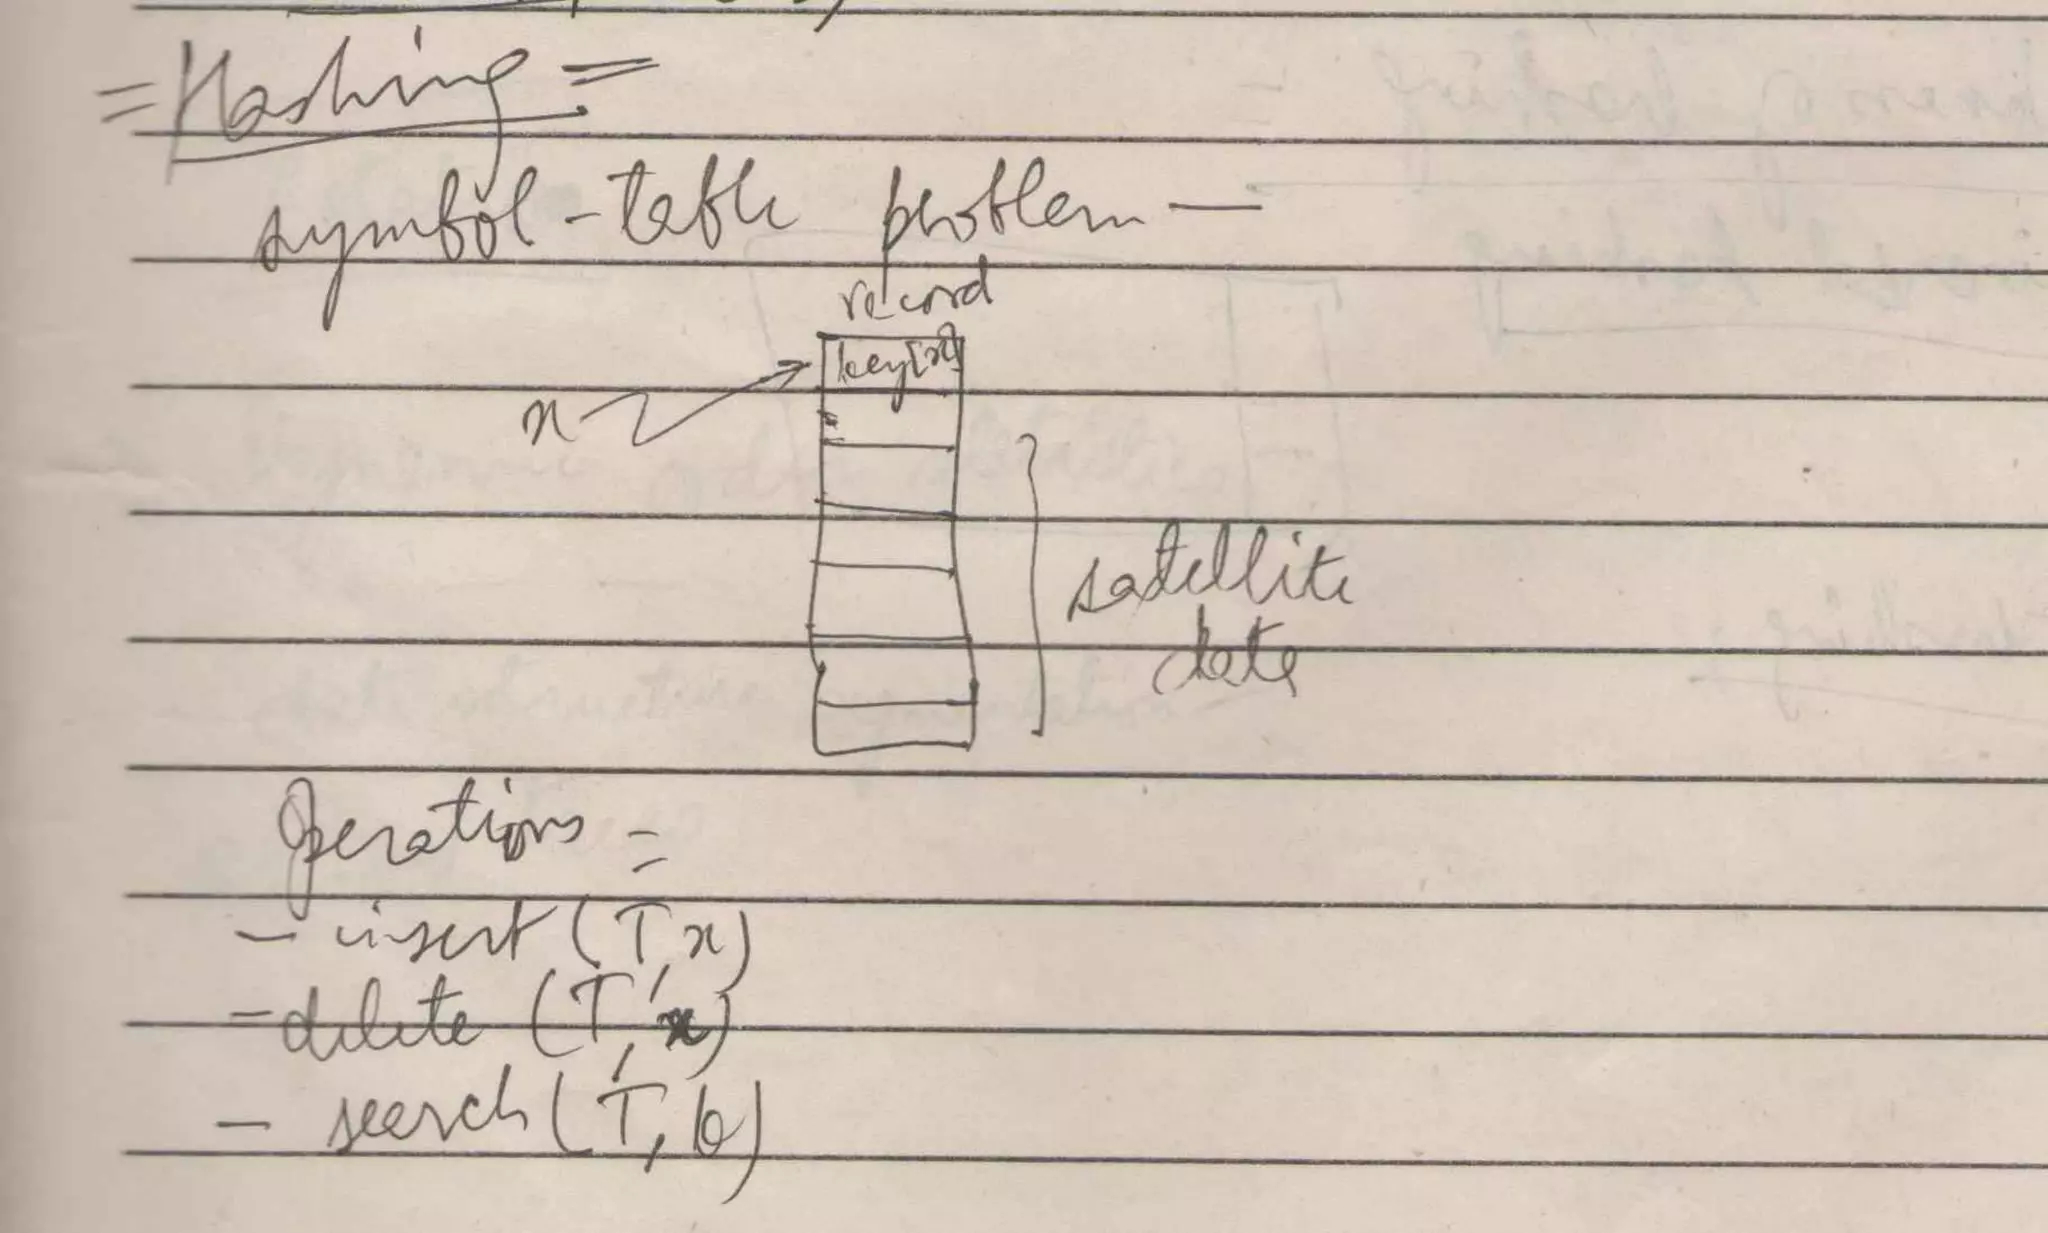 = Hashing =
symbol-table problem —
record
key[x]
x
satellite
data
Operations =
- insert (T, x)
- delete (T, x)
- search (T, k)